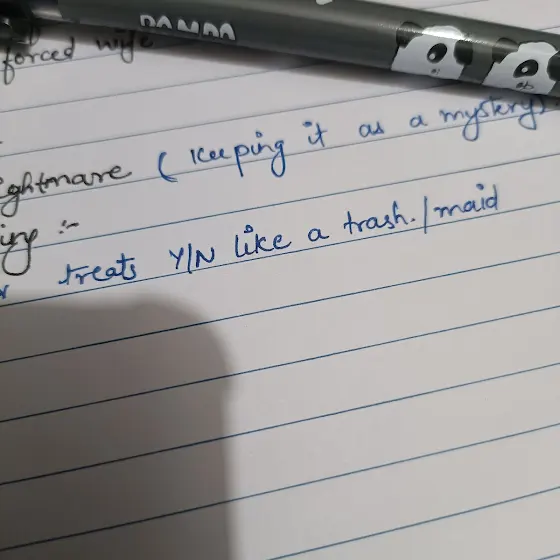 PANDA
forced wife
ghtmare ( Keeping it as a mystery)
treats Y/N like a trash./maid